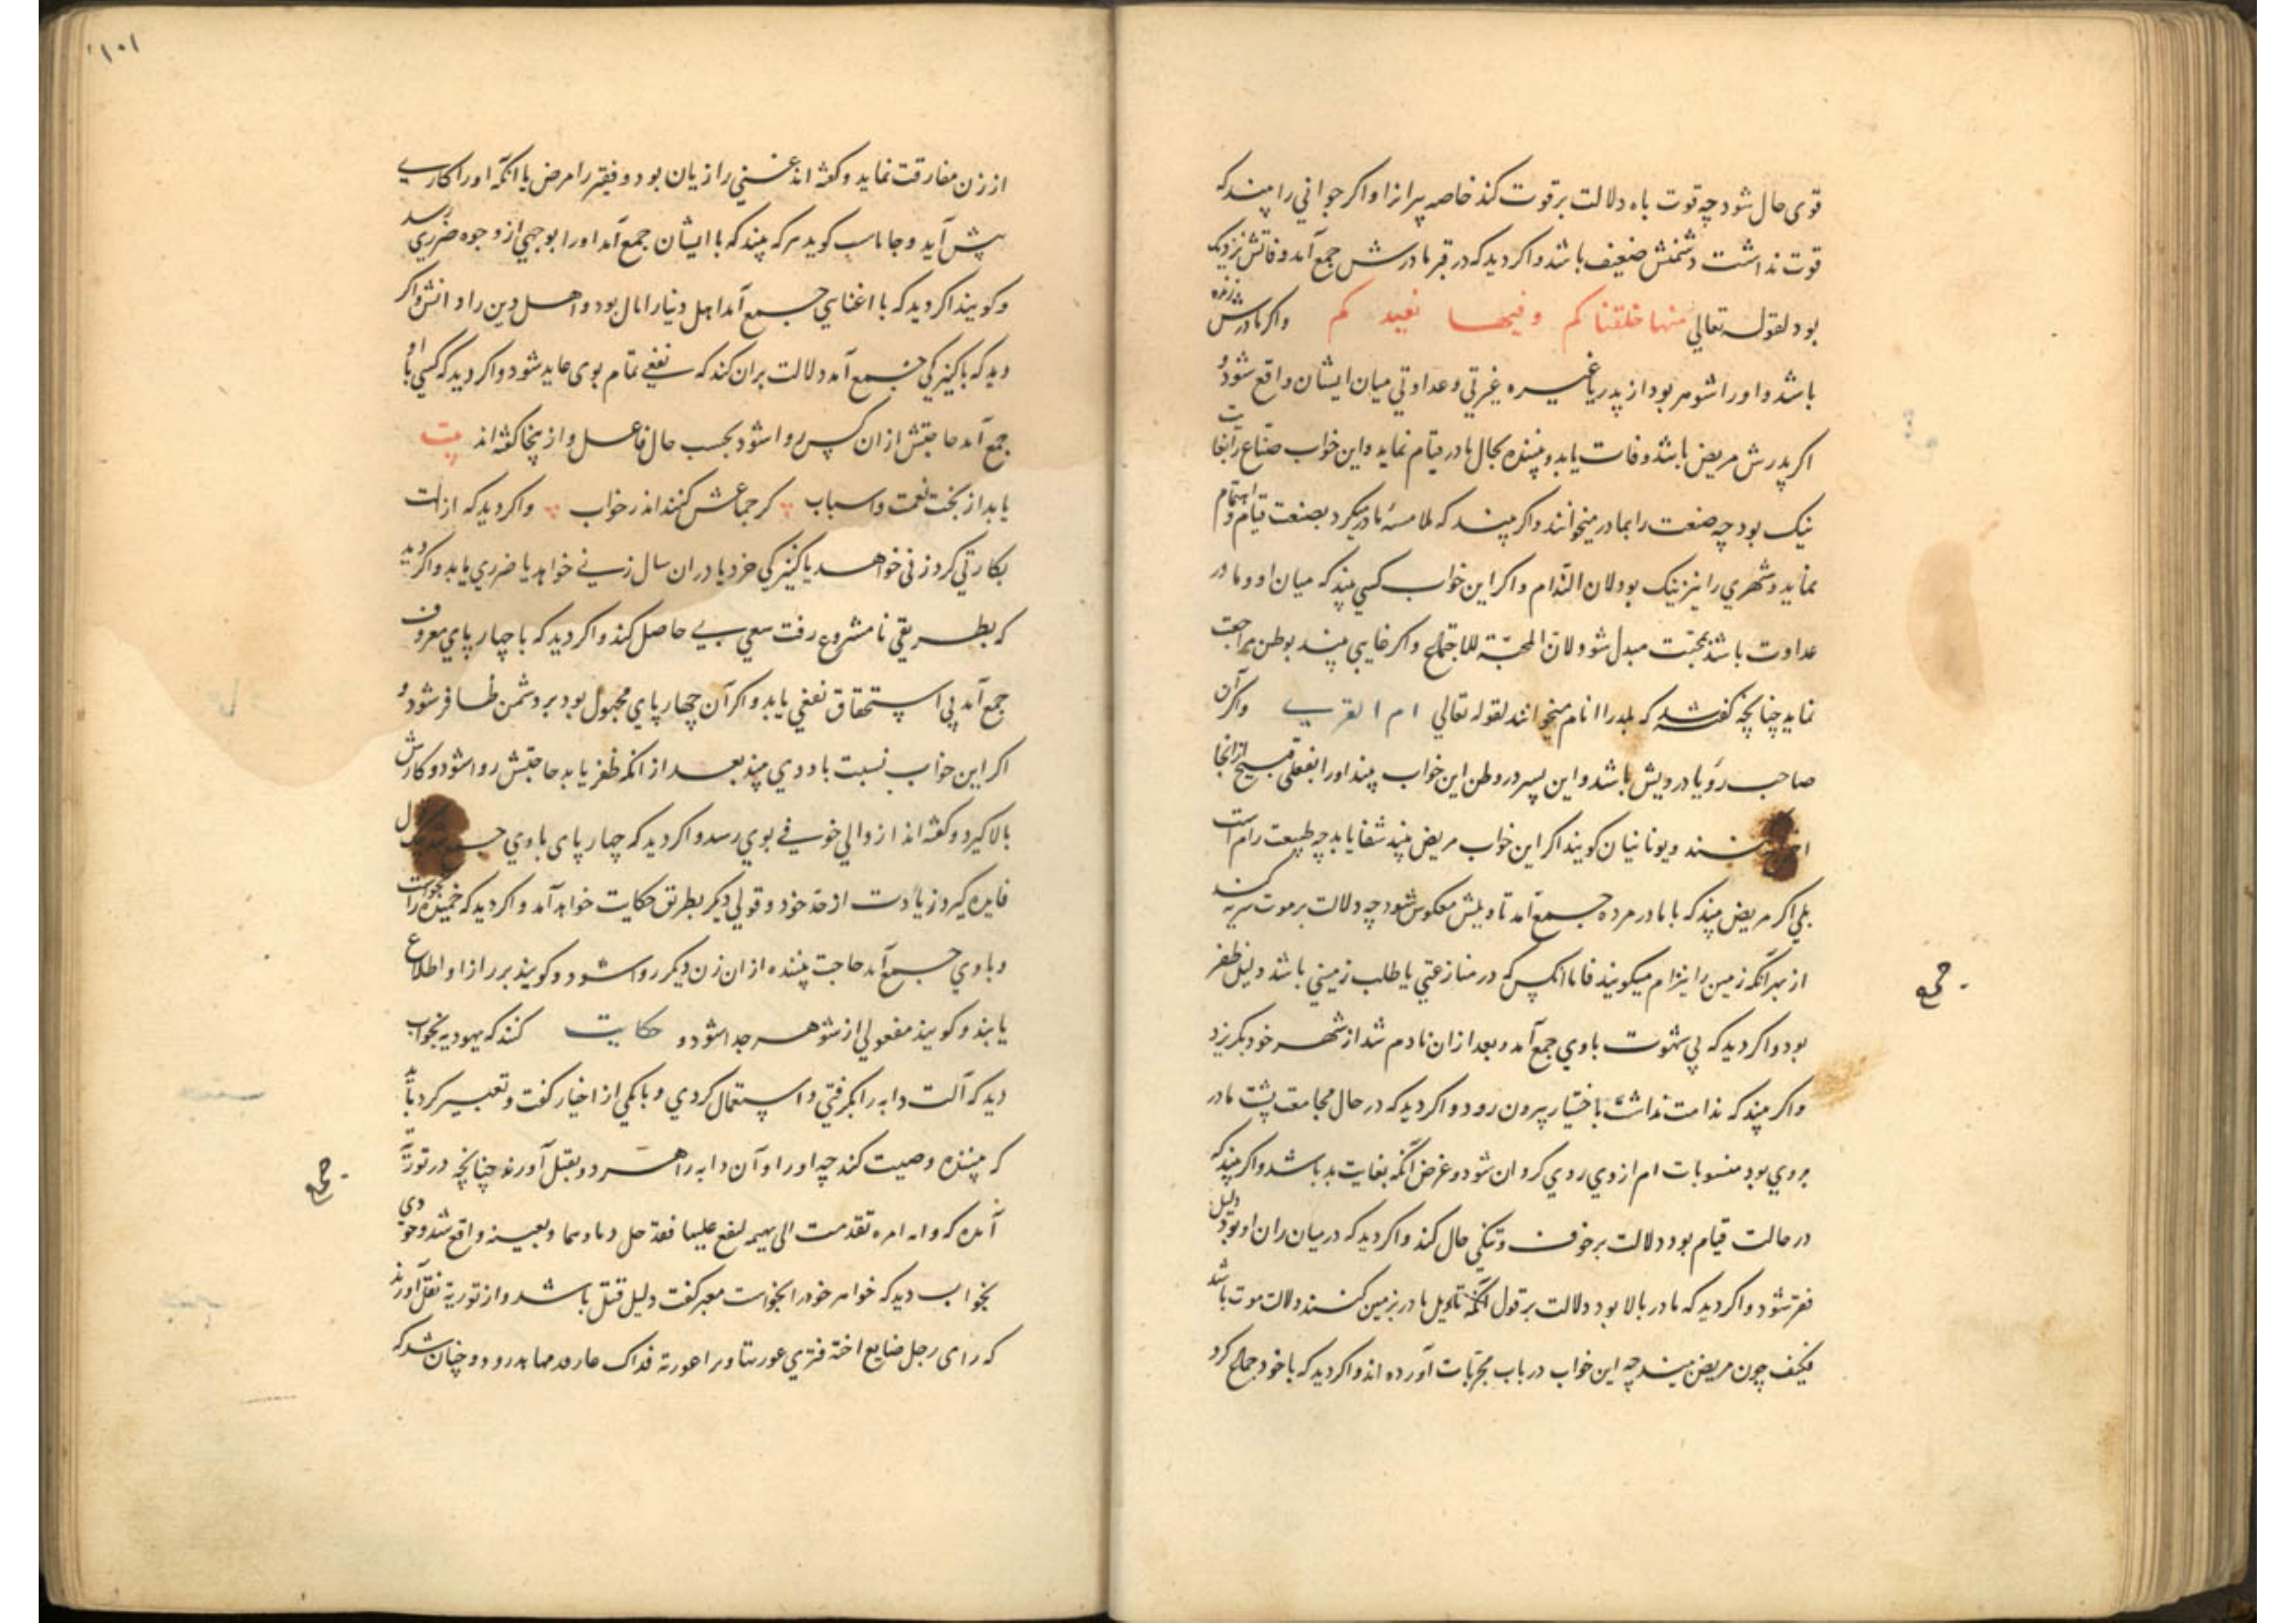 قوی حال شود چه قوت باه دلالت بر قوت کند خاصه پیرانرا و اکر جوانی را بیند که
قوت نداشت دشمنش ضعیف باشد و اکر دید که در قبر مادرش جمع آمد وفاتش نزدیک
بود لقوله تعالی منها خلقناکم وفیها نعیدکم و اکر مادرش زنده
باشد و او را شوهر بود از پدر یا غیره غیرتی و عداوتی میان ایشان واقع شود و
اکر پدرش مریض باشد وفات یابد و بیننده بحال مادر قیام نماید و این خواب صناع را بغایت
نیک بود چه صنعت را بمادر میخوانند و اکر بیند که ملامسه مادر میکرد بصنعت قیام و اهتمام
نماید و شهری را نیز نیک بود لان التدام و اکر این خواب کسی بیند که میان او و مادر
عداوت باشد بمحبت مبدل شود لان المحبة للاجتماع و اکر غایبی بیند بوطن مراجعت
نماید چنانچه کفته شد که بلد را ام نام میخوانند لقوله تعالی ام القری و اکر آن
صاحب رؤیا درویش باشد و این پسر در وطن این خواب بیند او را بفعلی قبیح از آنجا
کنند و یونانیان کویند اکر این خواب مریض بیند شفا یابد چه طبیعت را ام است
بلی اکر مریض بیند که با مادر مرده جمع آمد تاویلش معکوس شود چه دلالت بر موت کند
از بهر آنکه زمین را نیز ام میکویند فاما آنکس که در منازعتی یا طلب زمینی باشد دلیل ظفر
بود و اکر دید که بی شهوت با وی جمع آمد و بعد از آن نادم شد از شهر خود بکریزد
و اکر بیند که ندامت نداشت باختیار بیرون رود و اکر دید که در حال مجامعت پشت مادر
بر وی بود منسوبات ام از وی روی کردان شود و غرض آنکه بغایت بد باشد و اکر بیند که
در حالت قیام بود دلالت بر خوف و تنکی حال کند و اکر دید که در میان ران او بود دلیل
فقر شود و اکر دید که مادر بالا بود دلالت بر قول آنکه تاویل مادر بزمین کنند دلالت موت باشد
فکیف چون مریض بیند چه این خواب در باب مجربات آورده اند و اکر دید که با خود جماع کرد
جمع
۱۰۱
از زن مفارقت نماید و کفته اند غنی را زیان بود و فقیر را مرض یا آنکه او را کاری
پیش آید و جاماسب کوید هر که بیند که با ایشان جمع آمد او را بوجهی از وجوه ضرری رسد
و کویند اکر دید که با اغنیایی جمع آمد اهل دنیا را مال بود و اهل دین را دانش و اکر
دید که با کنیزکی جمع آمد دلالت بران کند که نفعی تمام بوی عاید شود و اکر دید که کسی با او
جمع آمد حاجتش از ان کس روا شود بحسب حال فاعل و از اینجا کفته اند بیت
یابد از بخت نعمت و اسباب کر جماعش کنند اندر خواب و اکر دید که ازالت
بکارتی کرد زنی خواهد یا کنیزکی خرد یا در ان سال زنی خواهد یا ضرری یابد و اکر دید
که بطریقی نامشروع رفت سعی بی حاصل کند و اکر دید که با چهار پای معروف
جمع آمد بی استحقاق نفعی یابد و اکر آن چهار پای مجهول بود بر دشمن ظافر شود و
اکر این خواب نسبت با ددی بیند بعد از انکه ظفر یابد حاجتش روا شود و کارش
بالا کیرد و کفته اند از والی خوفی بوی رسد و اکر دید که چهار پای با وی
فایده کیرد زیادت از حد خود و قولی دیکر بطریق حکایت خواهد آمد و اکر دید که
و با وی جمع آمد حاجت بیننده از ان زن دیکر روا شود و کویند بر راز او اطلاع
یابند و کویند مفعولی از شوهر جدا شود و حکایت کنند که یهودیه بخواب
دید که آلت دابه را بکرفتی و استعمال کردی و با یکی از اخیار کفت و تعبیر کرد باید
که بیننده وصیت کند چه او را و آن دابه را هر دو بقتل آورند چنانچه در توریة
آمده که واقع شد و
بخواب دید که خواهر خود را بخواست معبر کفت دلیل قتل باشد و از توریة نقل آورند
که رای رجل و چنان شد که
جمع